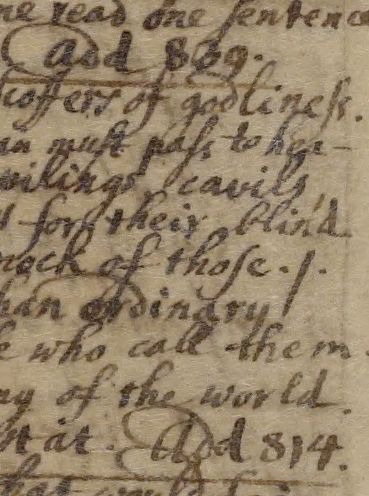 me read one sentence
Add 839.
coffers of godliness.
an must pass to hea-
cavils
for their blind
mock of those . / .
han ordinary
e who call them.
ng of the world.
at . Add 814.